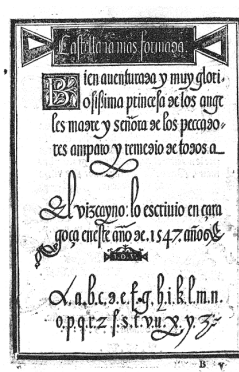 Castellana mas formada.
Bien auenturada y muy glori-
osissima princesa de los ange
les madre y señora de los peccado-
res amparo y remedio de todos a
El vizcayno: lo escriuio en çara
goça eneste año de .1547. años
I.D.V.
A.a.b.c.d.e.f.g.h.i.k.l.m.n.
o.p.q.r.z.ſ.s.t.v.u.x.y.z
B v